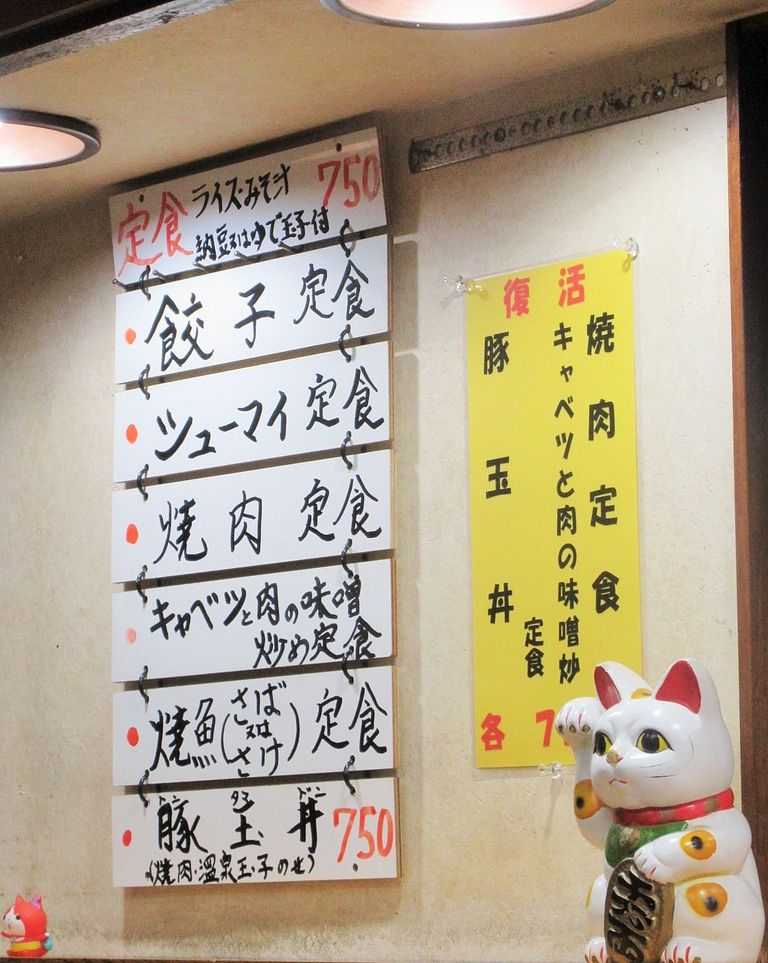 定食 ライス・みそ汁 750
納豆又はゆで玉子付
餃子定食
シューマイ定食
焼肉定食
キャベツと肉の味噌
炒め定食
焼魚(さば又はさけ)定食
豚玉丼 750
(焼肉・温泉玉子のせ)
復活
焼肉定食
キャベツと肉の味噌炒
定食
豚玉丼
各 7